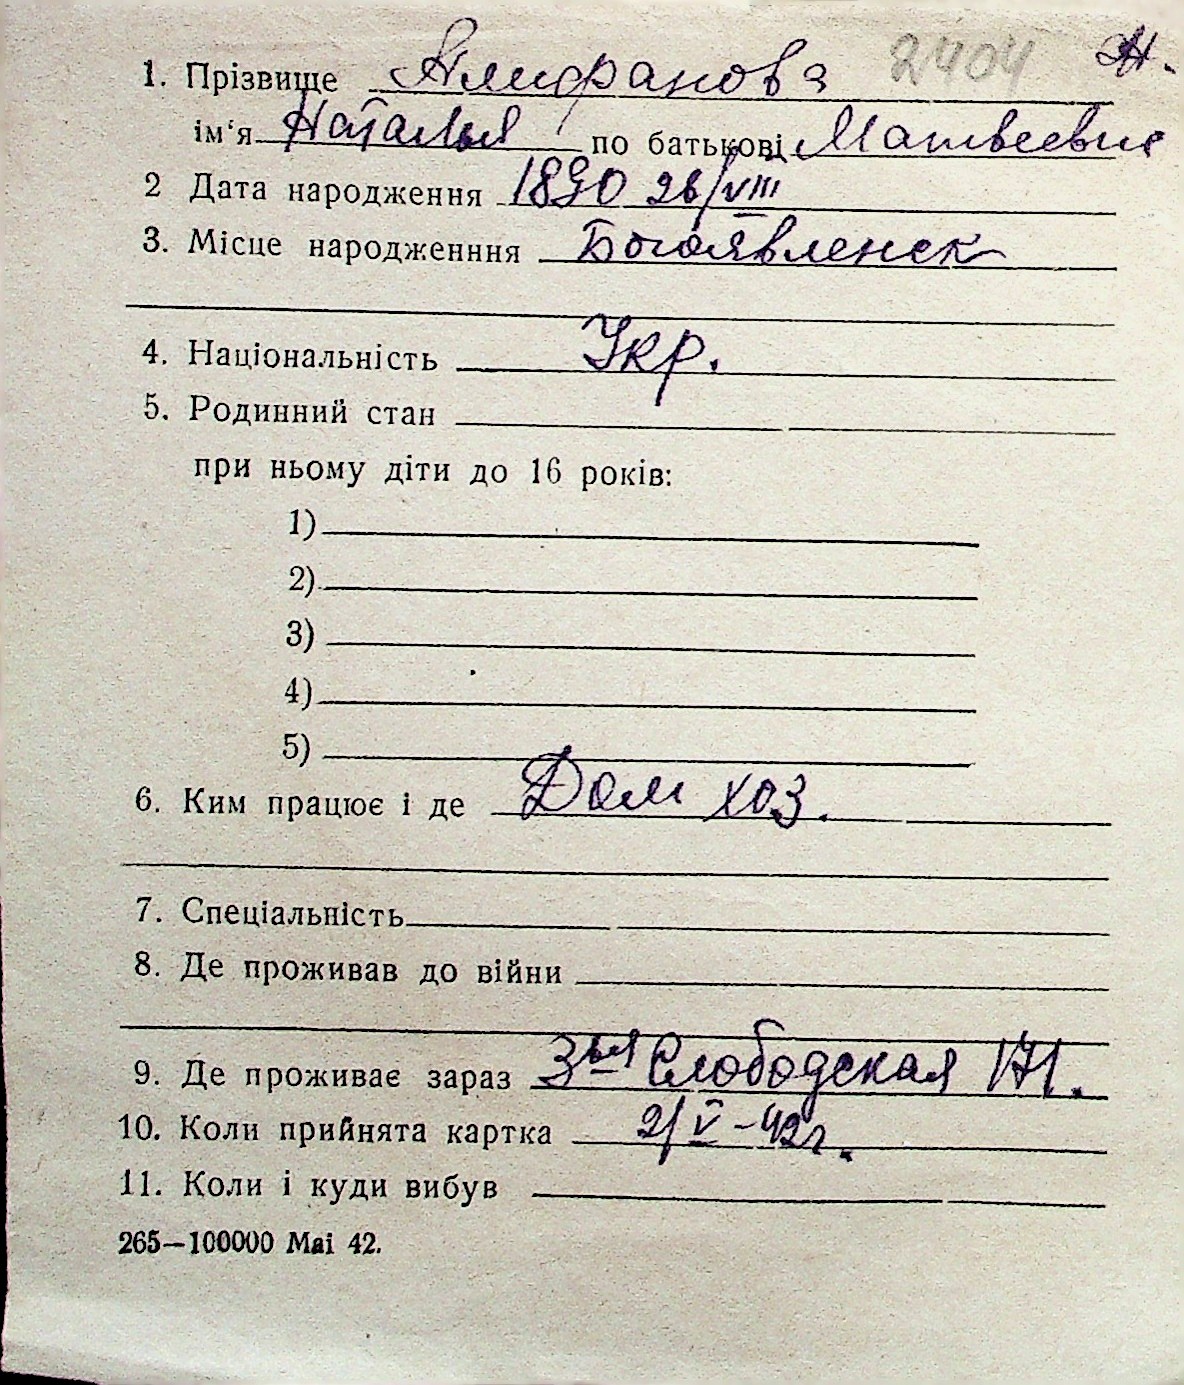 2404 Н.
1. Прізвище Алифанова
ім'я Наталья по батькові Матвеевна
2 Дата народження 1890 26/VIII
3. Місце народженння Богоявленск
4. Національність Укр.
5. Родинний стан
при ньому діти до 16 років:
1)
2)
3)
4)
5)
6. Ким працює і де Дом хоз.
7. Спеціальність
8. Де проживав до війни
9. Де проживає зараз 3ья Слободская 171.
10. Коли прийнята картка 2/V-42г.
11. Коли і куди вибув
265—100000 Mai 42.